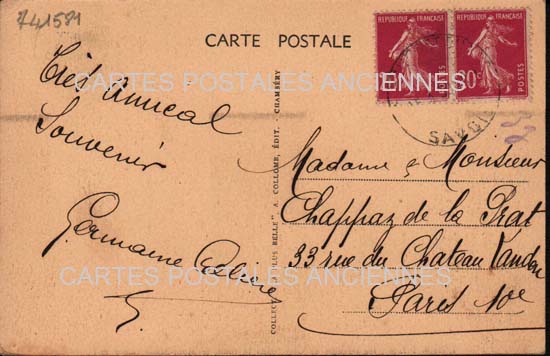 741581
CARTE POSTALE
REPUBLIQUE FRANÇAISE
POSTES
REPUBLIQUE FRANÇAISE
POSTES
0c
SAVOIE
CARTES POSTALES ANCIENNES
Très Amical
Souvenir
Germaine
COLLECT. "PLUS BELLE" A. COLLOMB, ÉDIT. CHAMBÉRY
Madame & Monsieur
Chappaz de la Prat
33 rue du Chateau Landon
Paris 10e
CARTES POSTALES ANCIENNES